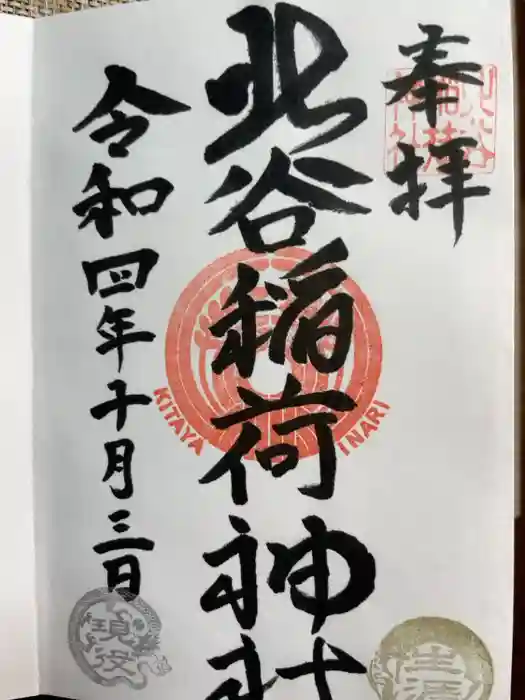 奉拝
北谷稲荷神社
令和四年十月三日
KITAYA INARI
現役